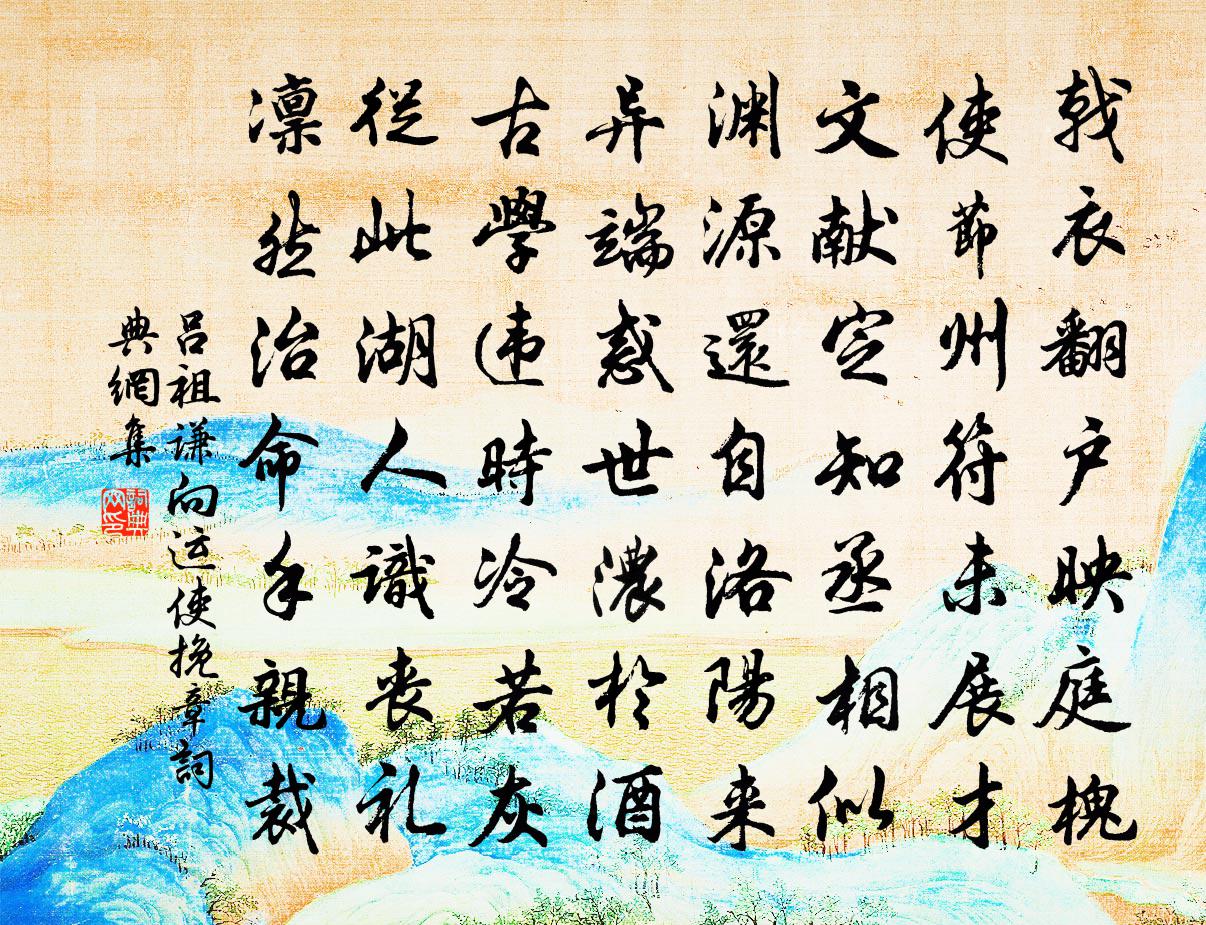 戟衣翻户映庭槐
使節州符未展才
文献定知丞相似
渊源還自洛陽来
异端惑世濃於酒
古學违時冷若灰
從此湖人識丧礼
凛然治命手親裁
吕祖谦向运使挽章詞
典網集
詞典網印